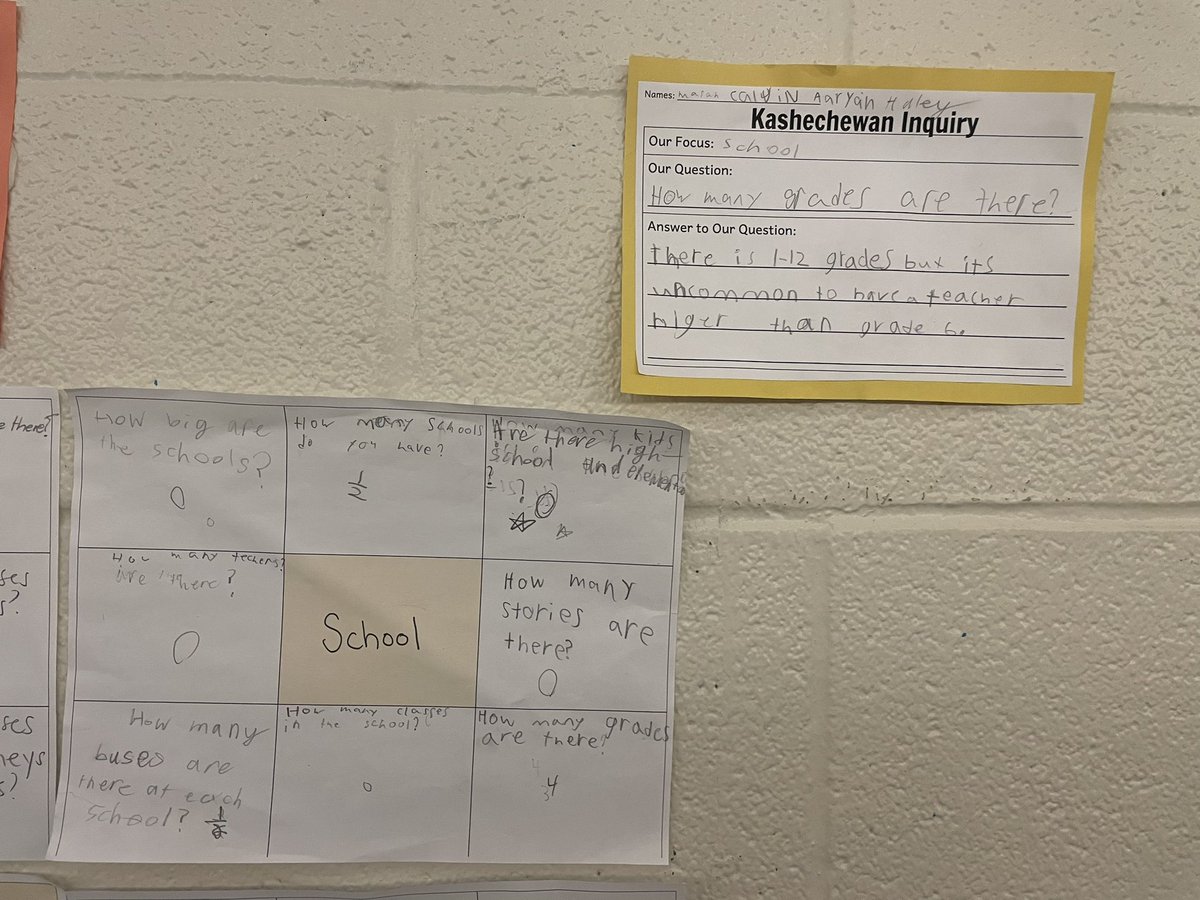 Names: Calvin Aaryan Haley
Kashechewan Inquiry
Our Focus: school
Our Question:
How many grades are there?
Answer to Our Question:
there is 1-12 grades but its
uncommon to have a teacher
higer than grade 6.
e there?
ses
s?
ses
neys
s?
How big are
the schools?
How many Schools
do you have?
1
2
Are there high
school and
How many techers?
are there?
School
How many
stories are
there?
How many
buses are
there at each
school?
How many classes
in the school?
How many grades
are there?
4